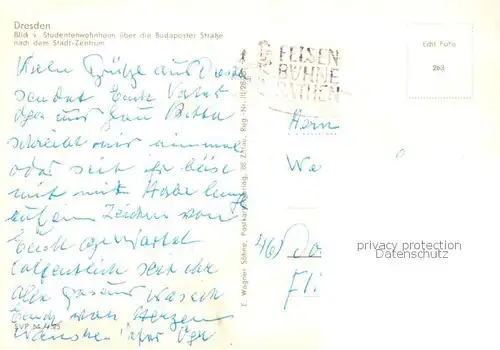 Dresden
Blick v. Studentenwohnheim über die Budapester Straße
nach dem Stadt-Zentrum
Echt Foto
263
FELSEN
BÜHNE
RATHEN
Viele Grüße aus Dresden
sendet Euch Vater
Oga und Frau Bitte
schreibt mir einmal
oder seit ihr böse
mit mir Habe lange
auf ein Zeichen von
Euch gewartet
seit ihr
alle gesund was ich
Euch von Herzen
Wünsche Vater Oga
Herrn
We
46) Do
Fli
E. Wagner Söhne, Postkartenverlag, 88 Zittau, Reg.-Nr. III/28/
EVP
privacy protection
Datenschutz